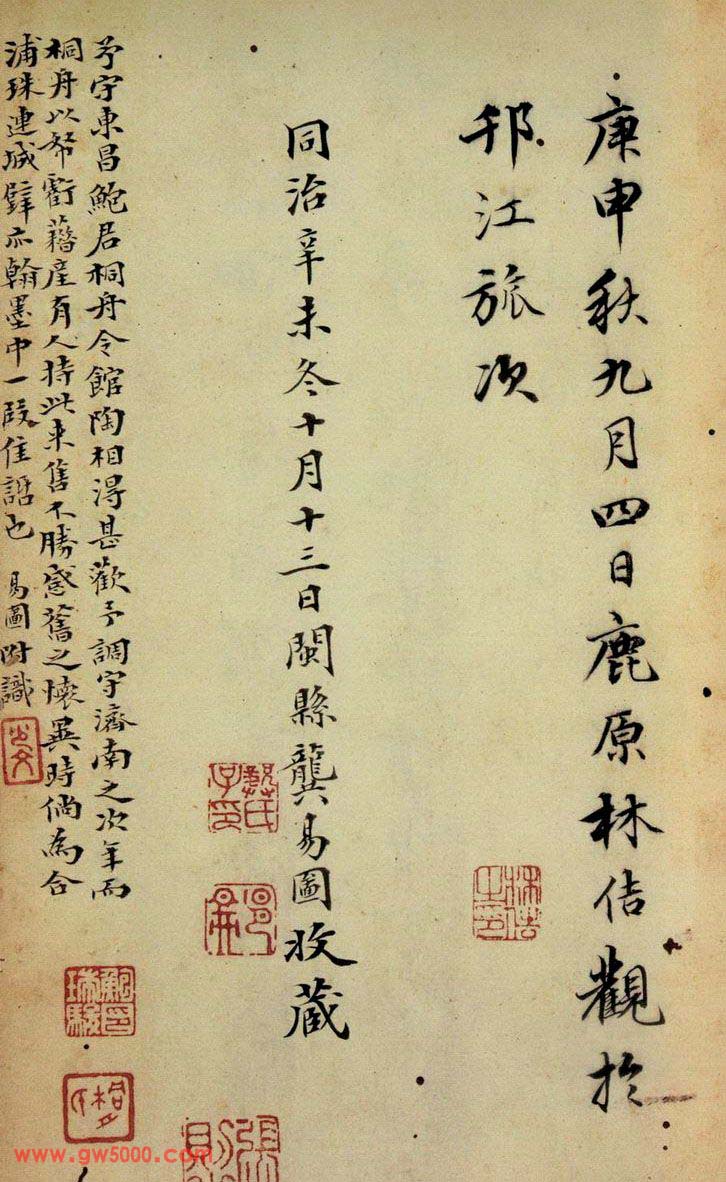 庚申秋九月四日鹿原林佶觀於
邗江旅次
同治辛未冬十月十三日閩縣龔易圖收藏
予守東昌鮑君桐舟令館陶相得甚歡予調守濟南之次年而
桐舟以帑虧藉產有人持此來售不勝感舊之懷異時倘為合
浦珠連城璧亦翰墨中一段佳話也 易圖附識
林佶
www.gw5000.com